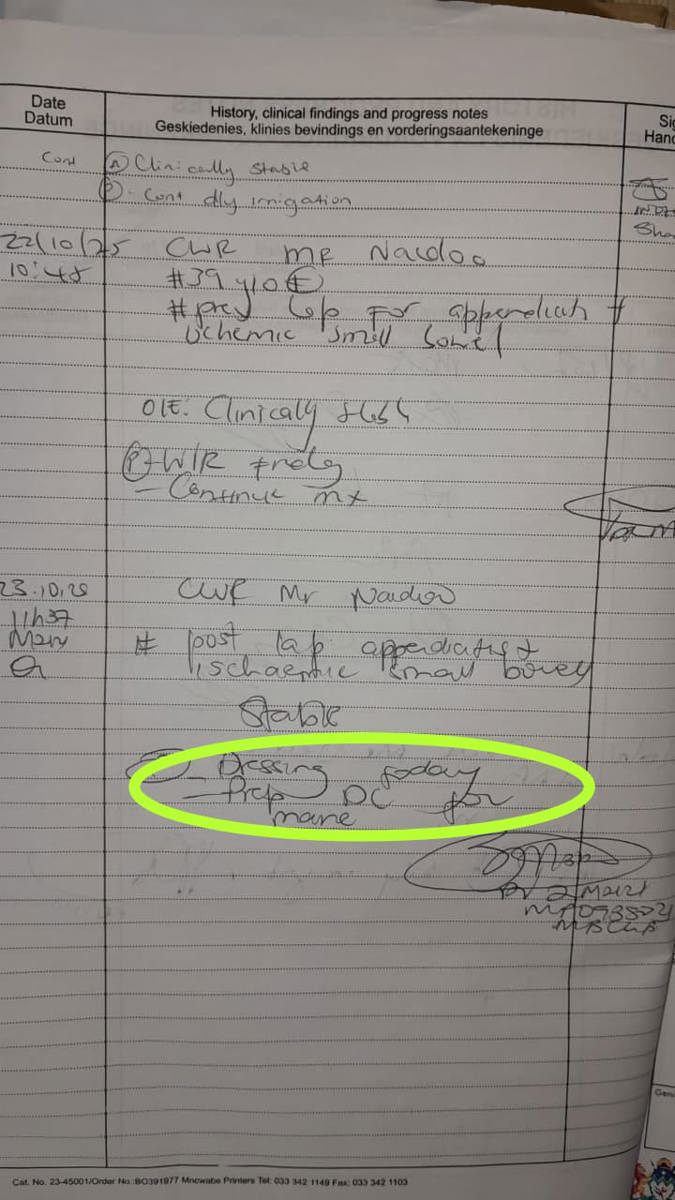 Date
Datum
History, clinical findings and progress notes
Geskiedenies, klinies bevindings en vorderingsaantekeninge
Sig
Hand
Cont
(A) Clinically stable
(P) - Cont dly irrigation
22/10/25
10:45
CWR Mr Naidoo
#39 y/o
# prev lap for
ischemic small bowel
O/E: Clinically
(P) - W/R
- Continue mx
23.10.25
11h37
CWR Mr Naidoo
# post lap appendicitis +
ischaemic small bowel
Stable
- Dressing today
- Prep DC for
mane
MBChB
Cat. No. 23-45001/Order No.:BO391977 Mncwabe Printers Tel: 033 342 1149 Fax: 033 342 1103